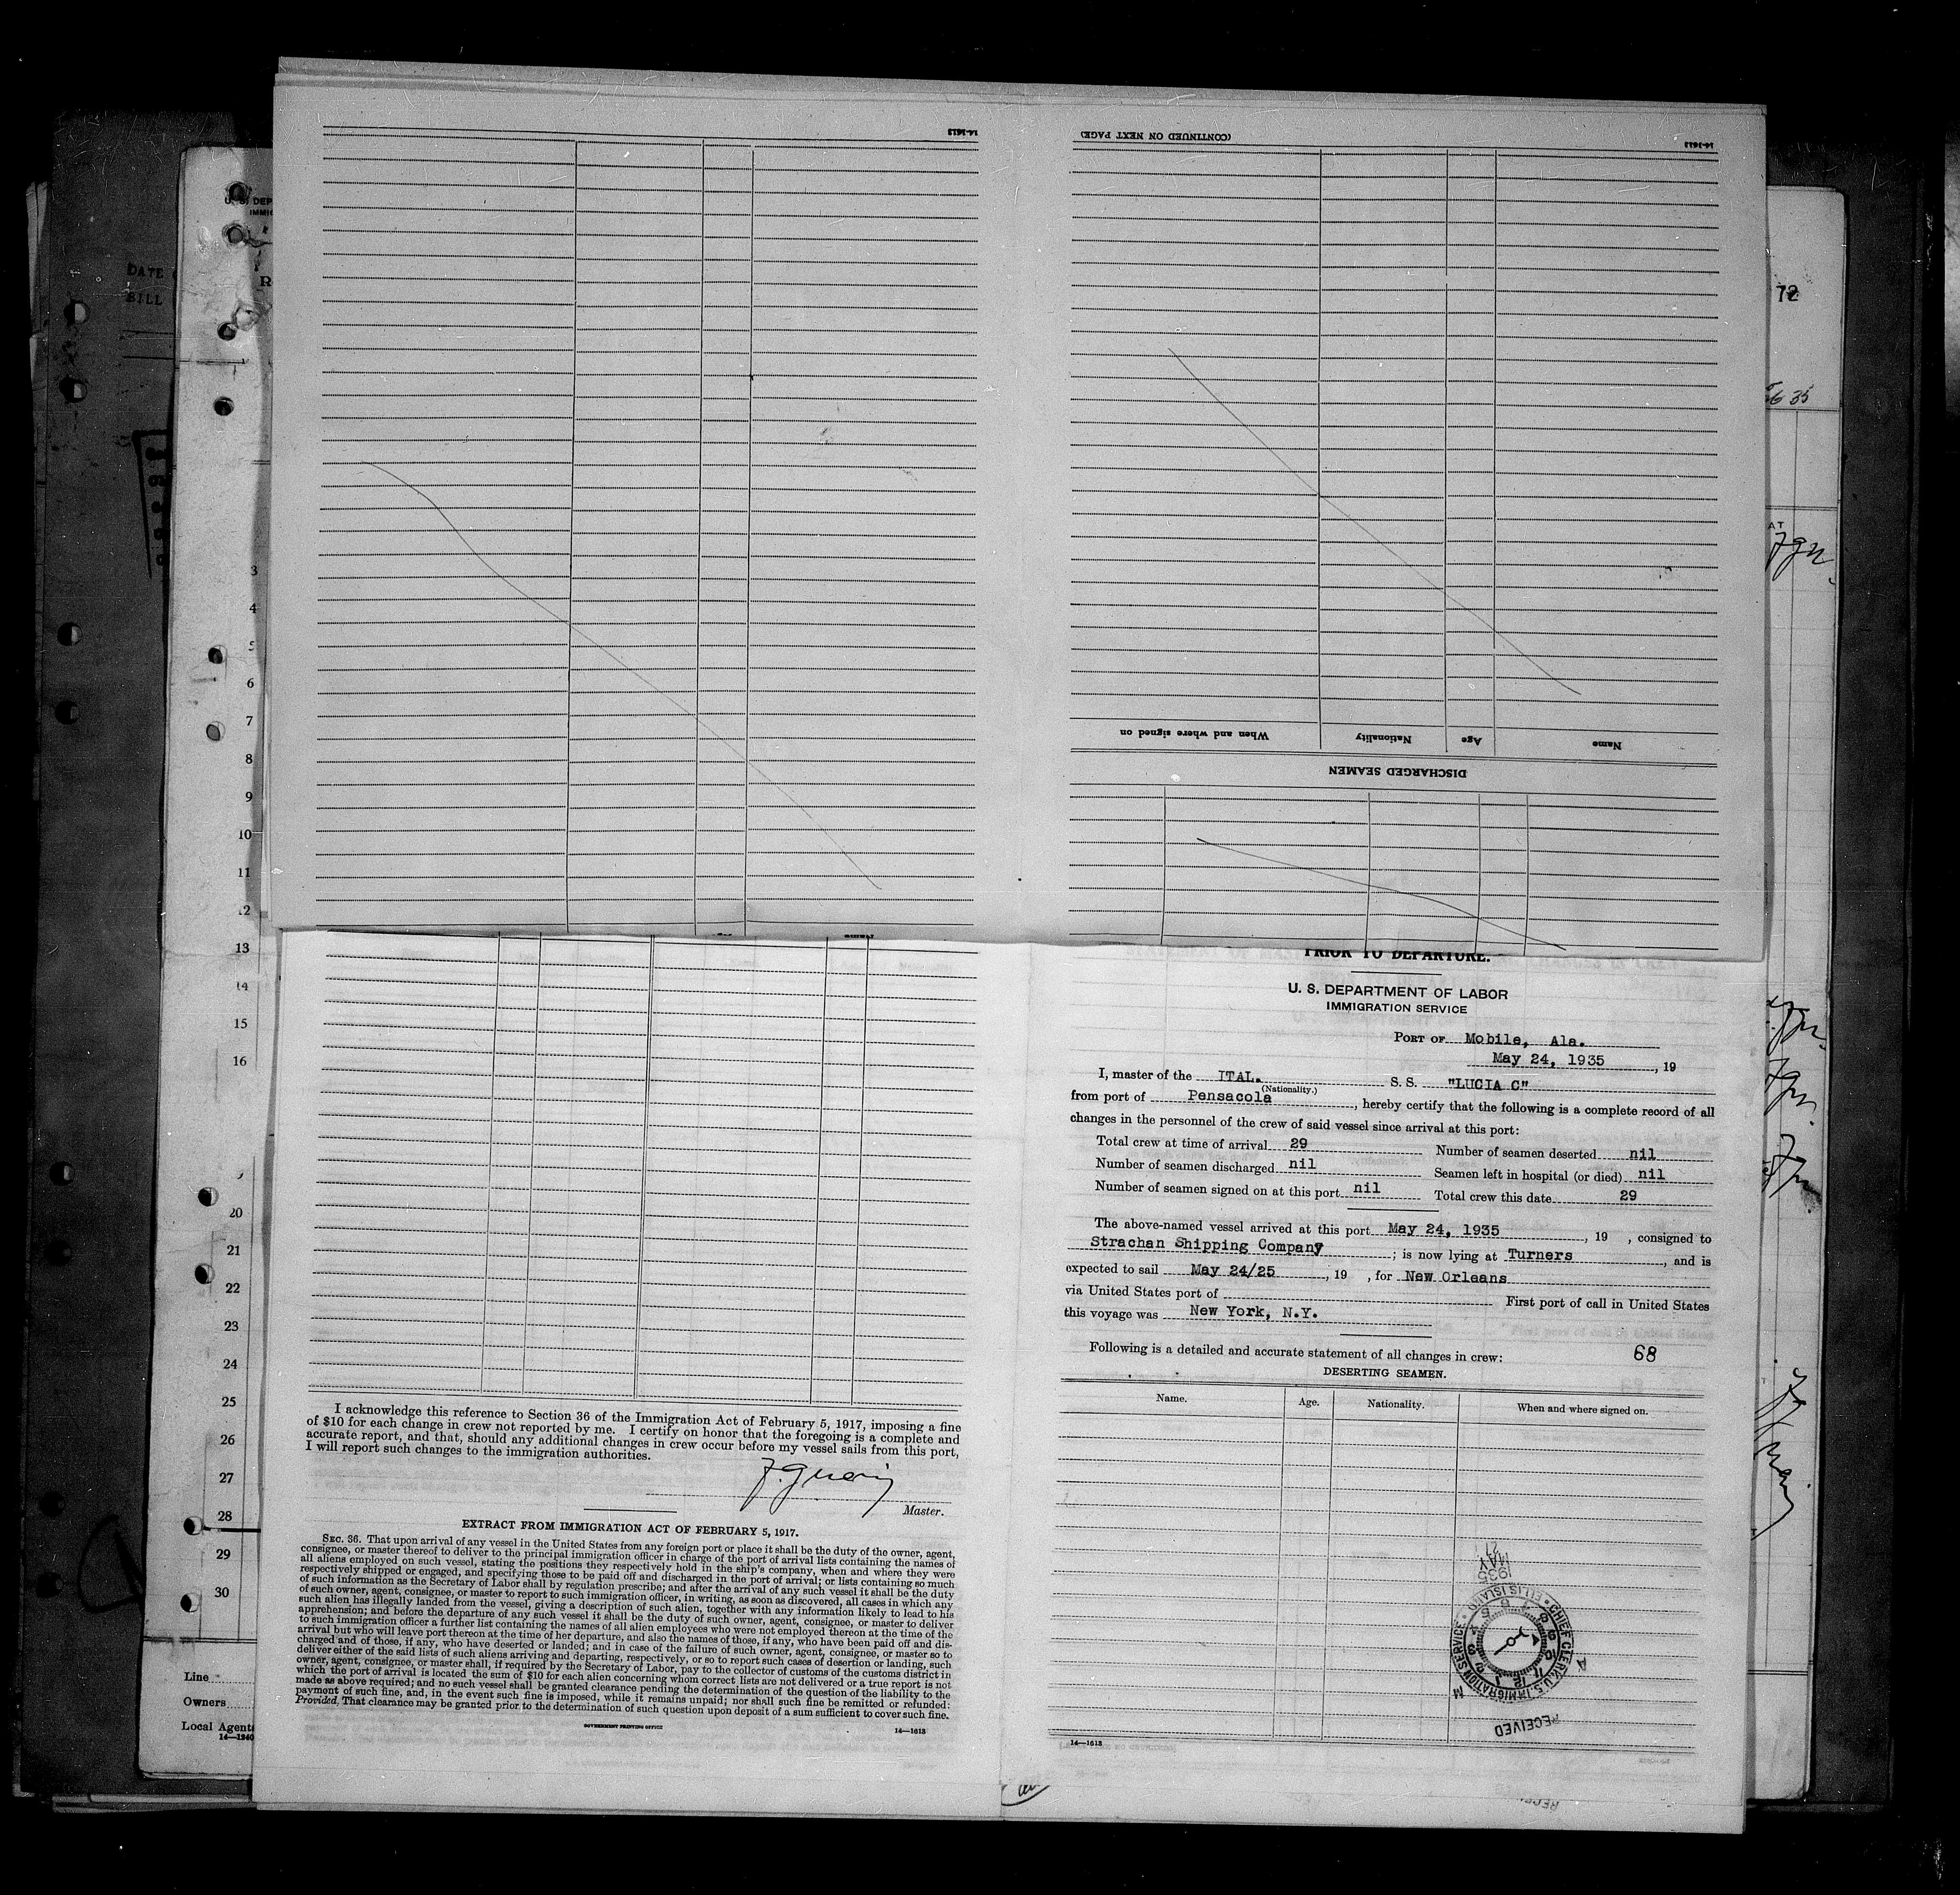 14-1613
(CONTINUED ON NEXT PAGE)
14-1613
When and where signed on
Nationality
Age
Name
DISCHARGED SEAMEN
DATE
BILL
U. S. DEP
IMMIG
R
72
35
AT
3
4
5
6
7
8
9
10
11
12
13
14
15
16
20
21
22
23
24
25
26
27
28
29
30
Line
Owners
Local Agents
14—1240
I acknowledge this reference to Section 36 of the Immigration Act of February 5, 1917, imposing a fine
of $10 for each change in crew not reported by me. I certify on honor that the foregoing is a complete and
accurate report, and that, should any additional changes in crew occur before my vessel sails from this port,
I will report such changes to the immigration authorities.
Master.
EXTRACT FROM IMMIGRATION ACT OF FEBRUARY 5, 1917.
SEC. 36. That upon arrival of any vessel in the United States from any foreign port or place it shall be the duty of the owner, agent,
consignee, or master thereof to deliver to the principal immigration officer in charge of the port of arrival lists containing the names of
all aliens employed on such vessel, stating the positions they respectively hold in the ship's company, when and where they were
respectively shipped or engaged, and specifying those to be paid off and discharged in the port of arrival; or lists containing so much
of such information as the Secretary of Labor shall by regulation prescribe; and after the arrival of any such vessel it shall be the duty
of such owner, agent, consignee, or master to report to such immigration officer, in writing, as soon as discovered, all cases in which any
such alien has illegally landed from the vessel, giving a description of such alien, together with any information likely to lead to his
apprehension; and before the departure of any such vessel it shall be the duty of such owner, agent, consignee, or master to deliver
to such immigration officer a further list containing the names of all alien employees who were not employed thereon at the time of the
arrival but who will leave port thereon at the time of her departure, and also the names of those, if any, who have been paid off and dis-
charged and of those, if any, who have deserted or landed; and in case of the failure of such owner, agent, consignee, or master so to
deliver either of the said lists of such aliens arriving and departing, respectively, or so to report such cases of desertion or landing, such
owner, agent, consignee, or master shall, if required by the Secretary of Labor, pay to the collector of customs of the customs district in
which the port of arrival is located the sum of $10 for each alien concerning whom correct lists are not delivered or a true report is not
made as above required; and no such vessel shall be granted clearance pending the determination of the question of the liability to the
payment of such fine, and, in the event such fine is imposed, while it remains unpaid; nor shall such fine be remitted or refunded:
Provided, That clearance may be granted prior to the determination of such question upon deposit of a sum sufficient to cover such fine.
GOVERNMENT PRINTING OFFICE
14—1613
PRIOR TO DEPARTURE.
U. S. DEPARTMENT OF LABOR
IMMIGRATION SERVICE
PORT OF Mobile, Ala.
May 24, 1935, 19
I, master of the ITAL. S. S. "LUCIA C"
(Nationality.)
from port of Pensacola, hereby certify that the following is a complete record of all
changes in the personnel of the crew of said vessel since arrival at this port:
Total crew at time of arrival 29 Number of seamen deserted nil
Number of seamen discharged nil Seamen left in hospital (or died) nil
Number of seamen signed on at this port nil Total crew this date 29
The above-named vessel arrived at this port May 24, 1935, 19 , consigned to
Strachan Shipping Company; is now lying at Turners, and is
expected to sail May 24/25, 19 , for New Orleans
via United States port of First port of call in United States
this voyage was New York, N.Y.
Following is a detailed and accurate statement of all changes in crew: 68
DESERTING SEAMEN.
Name. Age. Nationality. When and where signed on.
RECEIVED
CHIEF CLERK U.S. IMMIGRATION SERVICE · ELLIS ISLAND
1935
MAY
27
A
M
14—1613